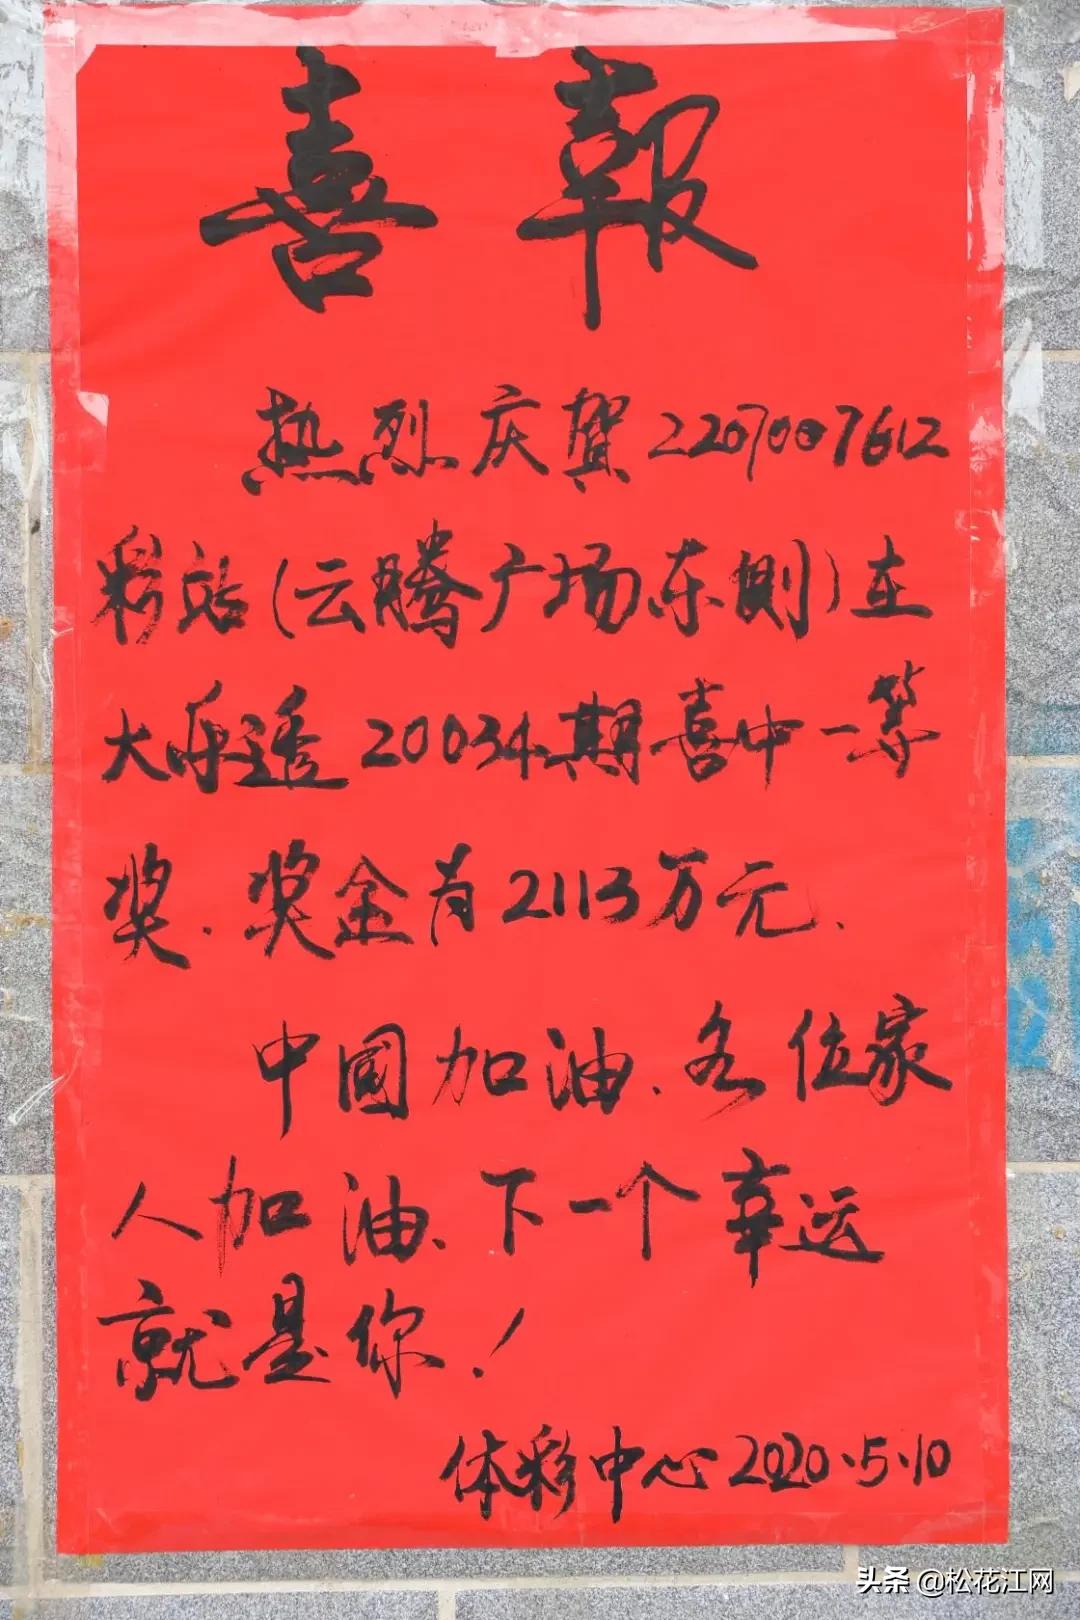 喜報
热烈庆贺2207007612
彩站(云腾广场东侧)在
大乐透20034期喜中一等
奖.奖金为2113万元.
中國加油.各位家
人加油、下一个幸运
就是你!
体彩中心2020.5.10
头条 @松花江网